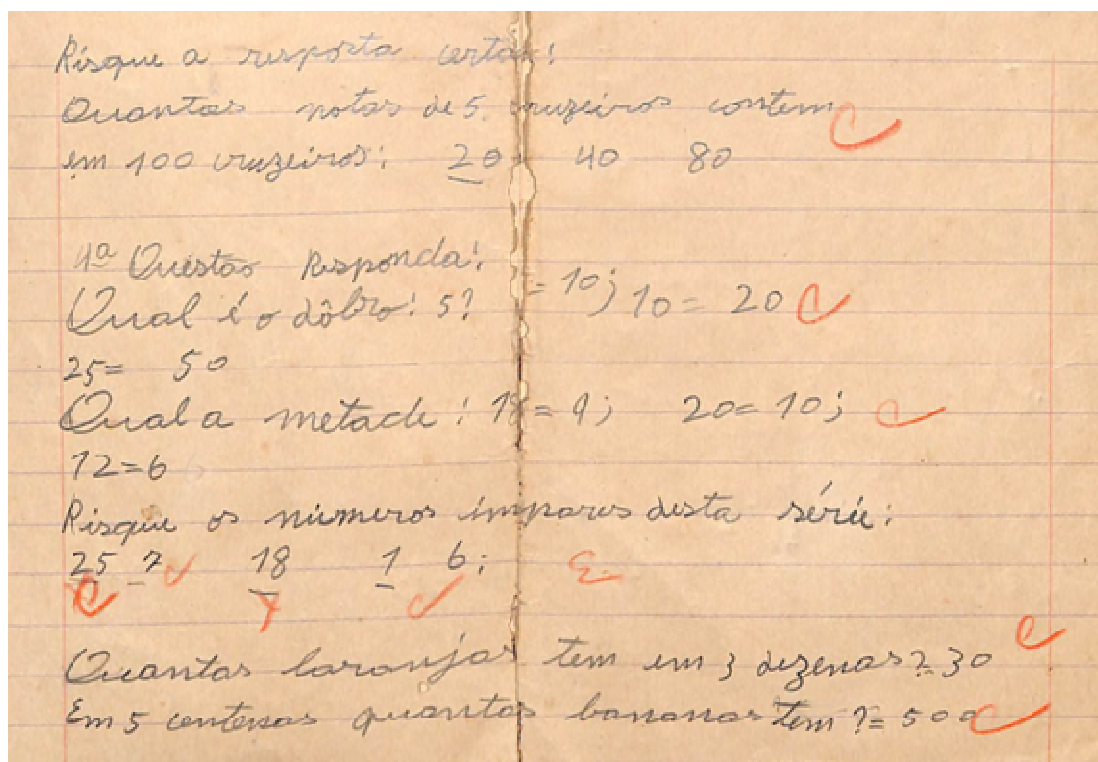 Risque a resposta certa:
Quantas notas de 5 cruzeiros contem
em 100 cruzeiros: 20 40 80
4ª Questão Responda:
Qual é o dôbro: 5? = 10; 10 = 20
25 = 50
Qual a metade: 18 = 9; 20 = 10;
12 = 6
Risque os números ímpares desta série:
25 7 18 1 6;
Quantas laranjas tem em 3 dezenas? = 30
Em 5 centenas quantas bananas tem? = 500